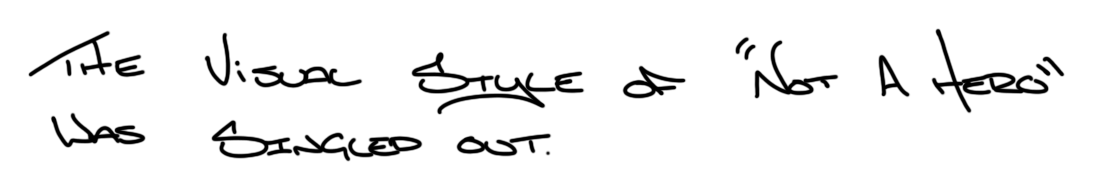 The Visual Style of "Not A Hero"
was singled out.